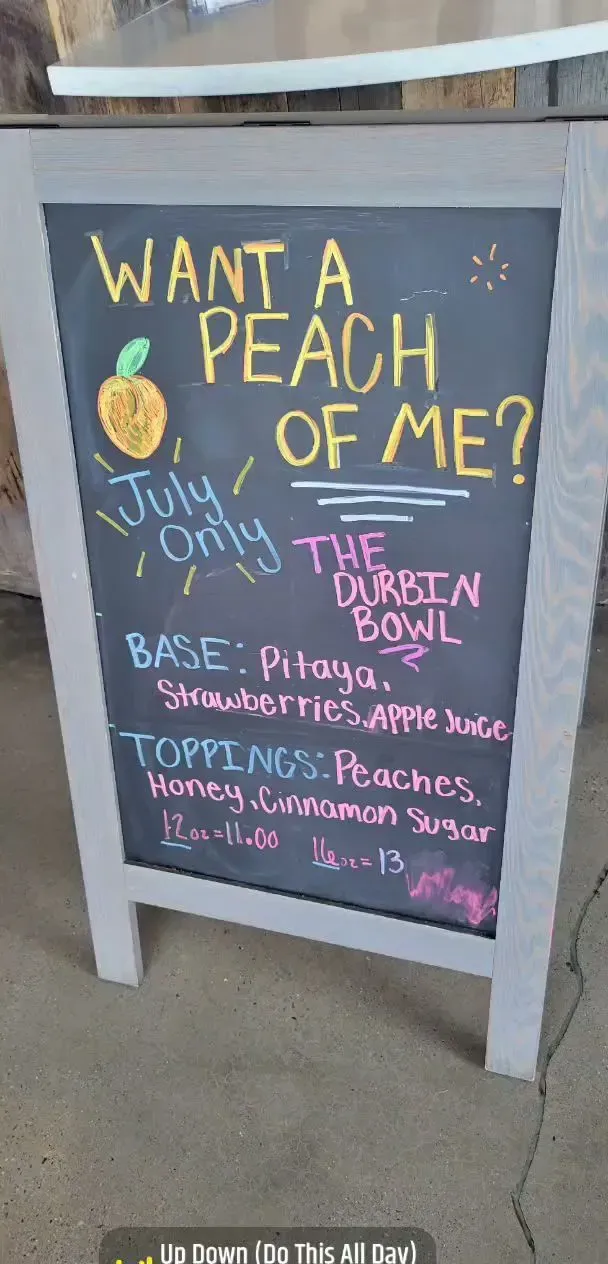 WANT A
PEACH
OF ME?
July
Only
THE
DURBIN
BOWL
BASE: Pitaya,
Strawberries, Apple Juice
TOPPINGS: Peaches,
Honey, Cinnamon Sugar
12oz=11.00 16oz=13
Up Down (Do This All Day)